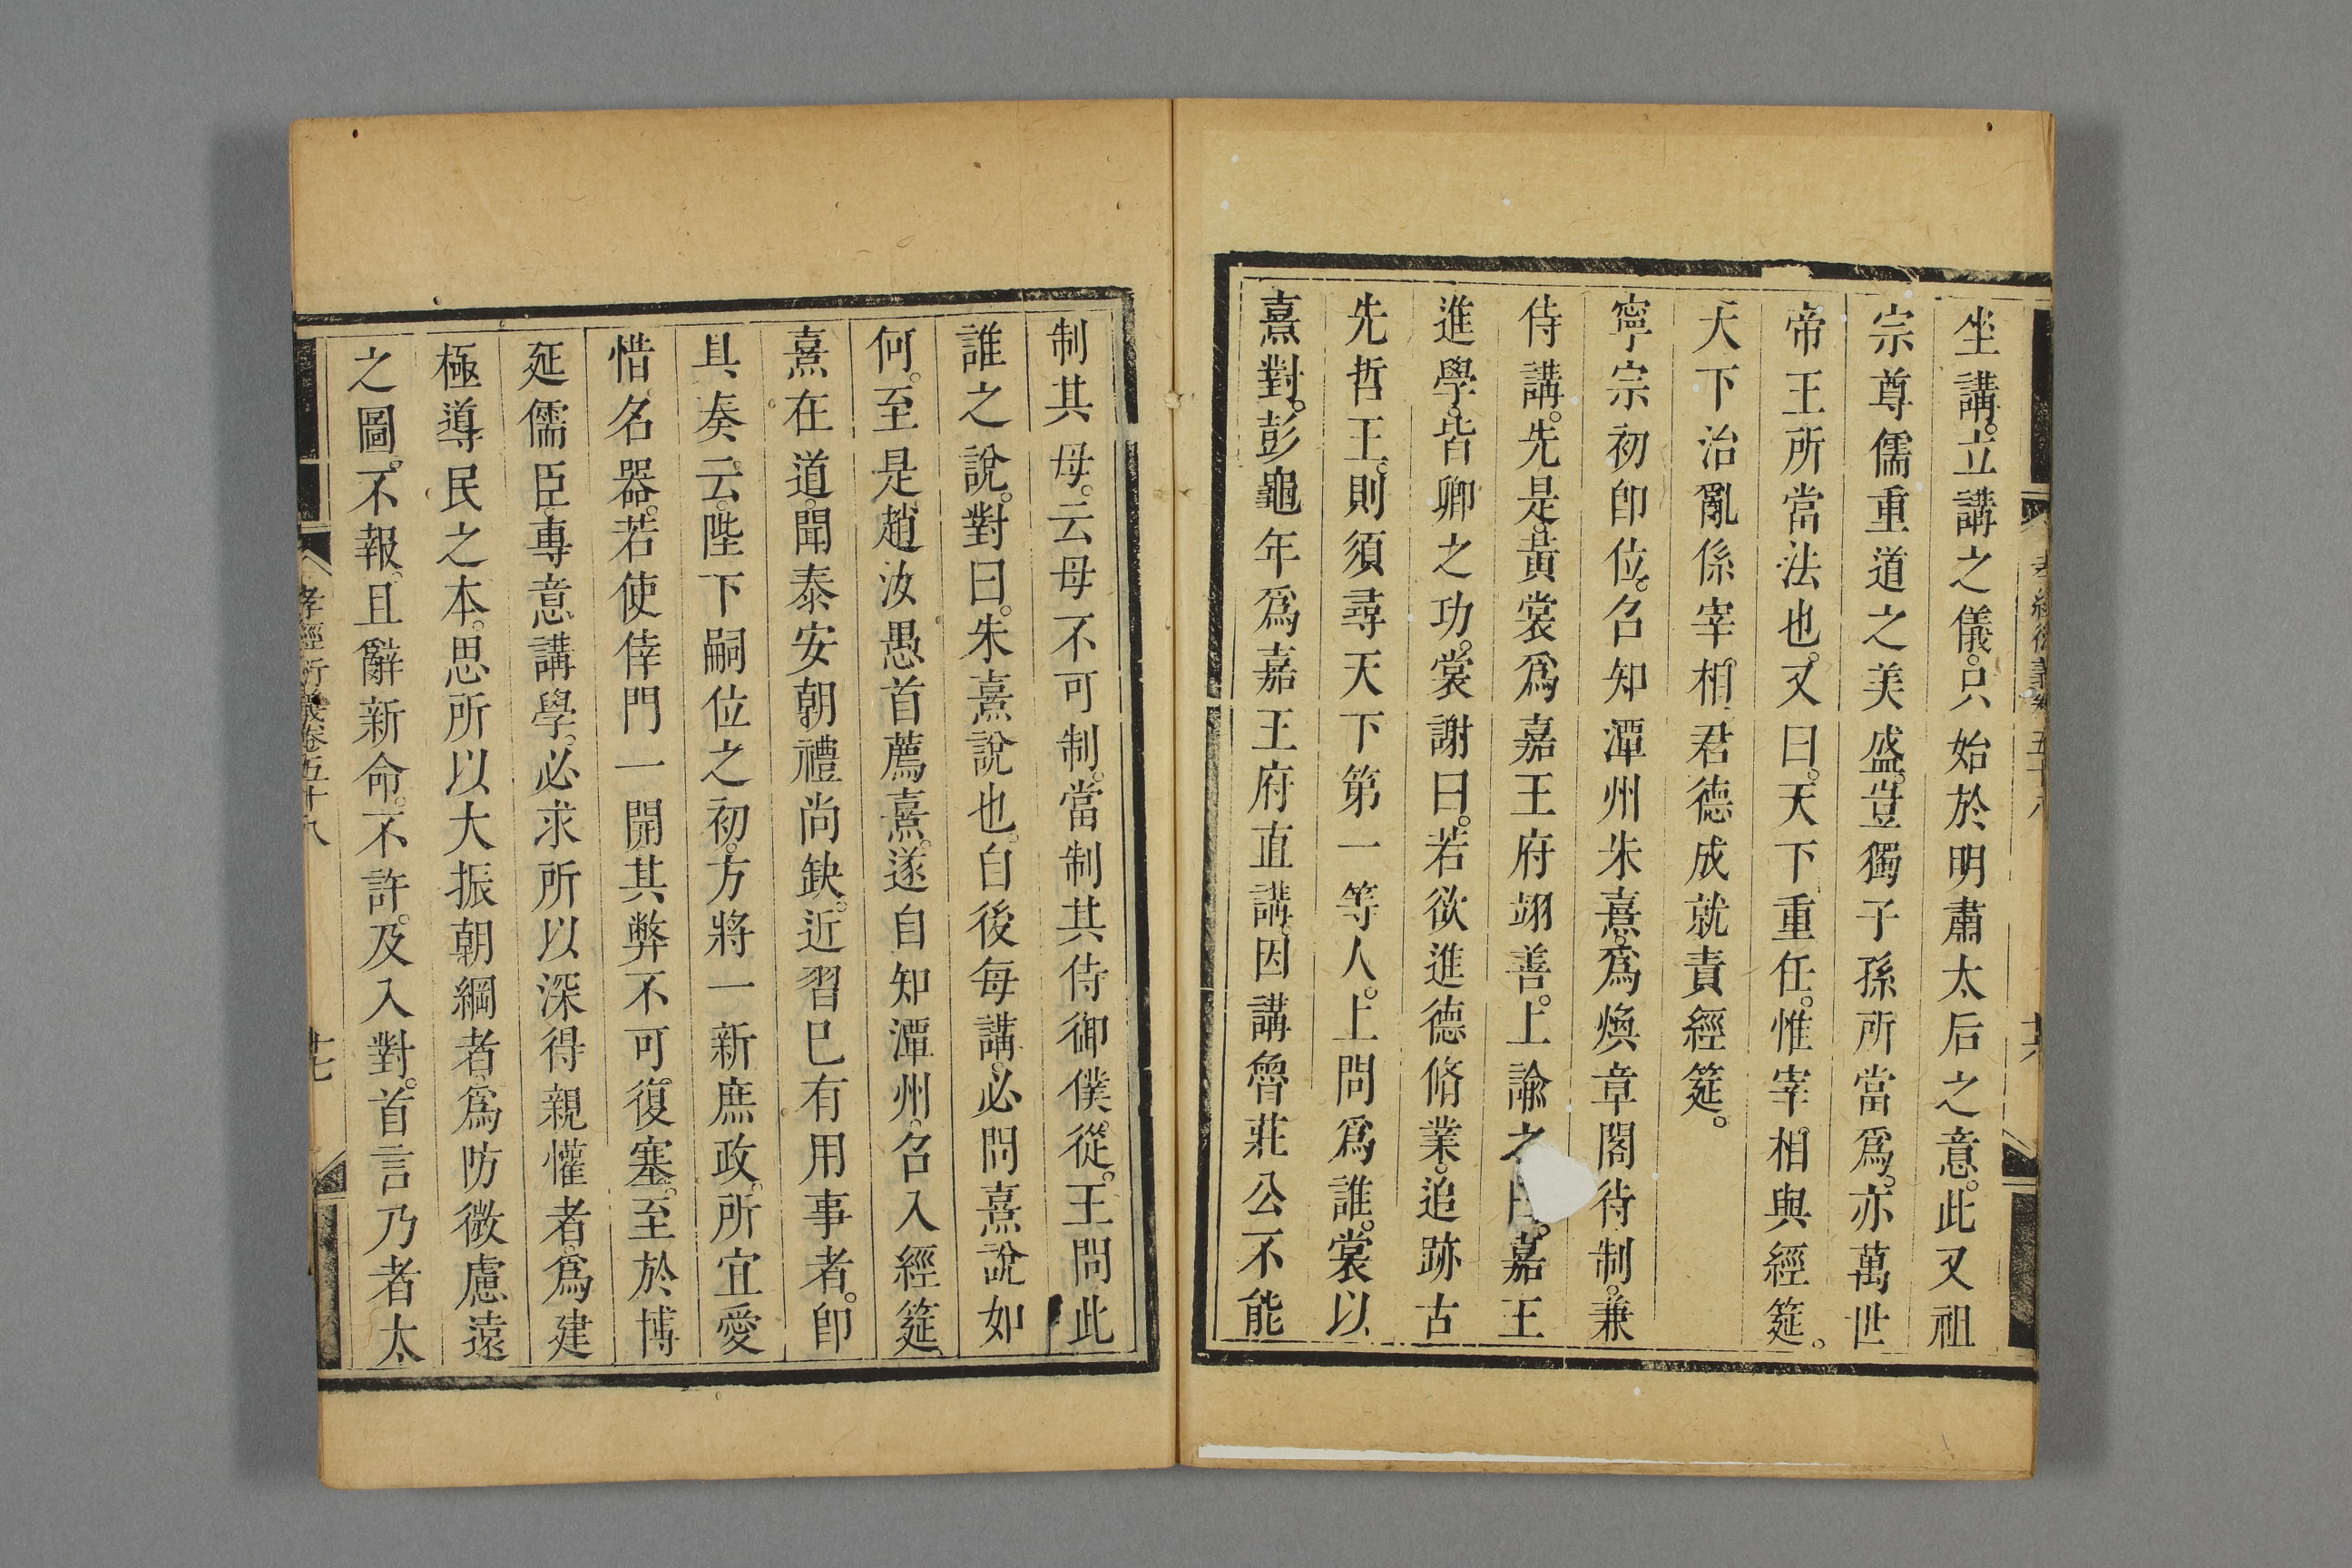 坐講。立講之儀。只始於明肅太后之意。此又祖
宗尊儒重道之美盛。豈獨子孫所當爲。亦萬世
帝王所當法也。又曰。天下重任。惟宰相與經筵。
天下治亂係宰相。君德成就責經筵。
寧宗初卽位。召知潭州朱熹。爲煥章閣待制。兼
侍講。先是。黃裳爲嘉王府翊善。上諭之曰。嘉王
進學。皆卿之功。裳謝曰。若欲進德脩業。追跡古
先哲王。則須尋天下第一等人。上問爲誰。裳以
熹對。彭龜年爲嘉王府直講。因講魯莊公不能
制其母。云母不可制。當制其侍御僕從。王問此
誰之說。對曰。朱熹說也。自後每講。必問熹說如
何。至是趙汝愚首薦熹。遂自知潭州。召入經筵。
熹在道。聞泰安朝禮尚缺。近習已有用事者。卽
具奏云。陛下嗣位之初。方將一新庶政。所宜愛
惜名器。若使倖門一開。其弊不可復塞。至於博
延儒臣。專意講學。必求所以深得親懽者。爲建
極導民之本。思所以大振朝綱者。爲防微慮遠
之圖。不報。且辭新命。不許。及入對。首言乃者太
孝經衍義卷五十八
廿七